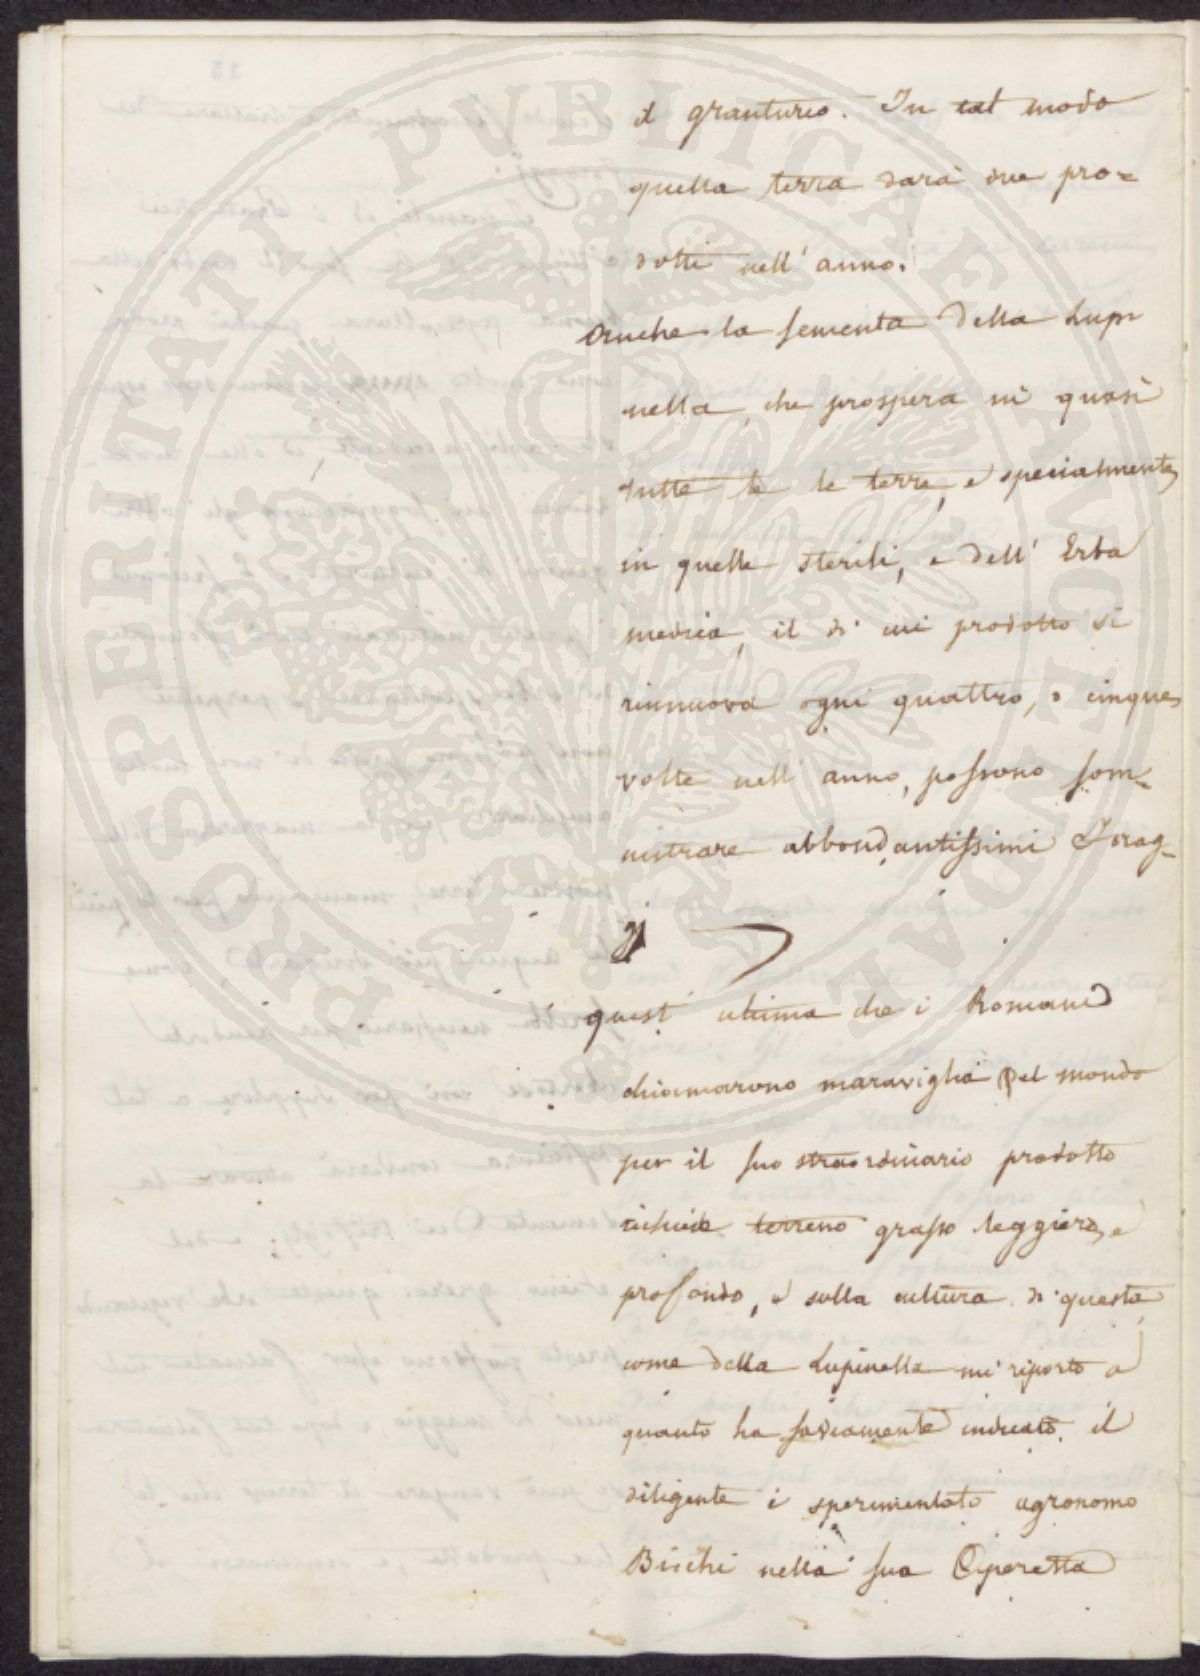 il granturco. In tal modo
quella terra darà due pro=
dotti nell' anno.
Anche la sementa della Lupi
nella, che prospera in quasi
tutte le le terre, e specialmente
in quelle sterili, e dell' Erba
medica, il di cui prodotto si
rinnuova ogni quattro, o cinque
volte nell' anno, possono som-
nistrare abbondantissimi Forag-
gi
quest' ultima che i Romani
chiamarono maraviglia del mondo
per il suo straordinario prodotto
richiede terreno grasso leggiero, e
profondo, e sulla cultura di questa,
come della Lupinella mi riporto a
quanto ha saviamente indicato il
diligente e sperimentato agronomo
Bicchi nella sua Operetta
PROSPERITATI PUBLICAE AUGENDAE